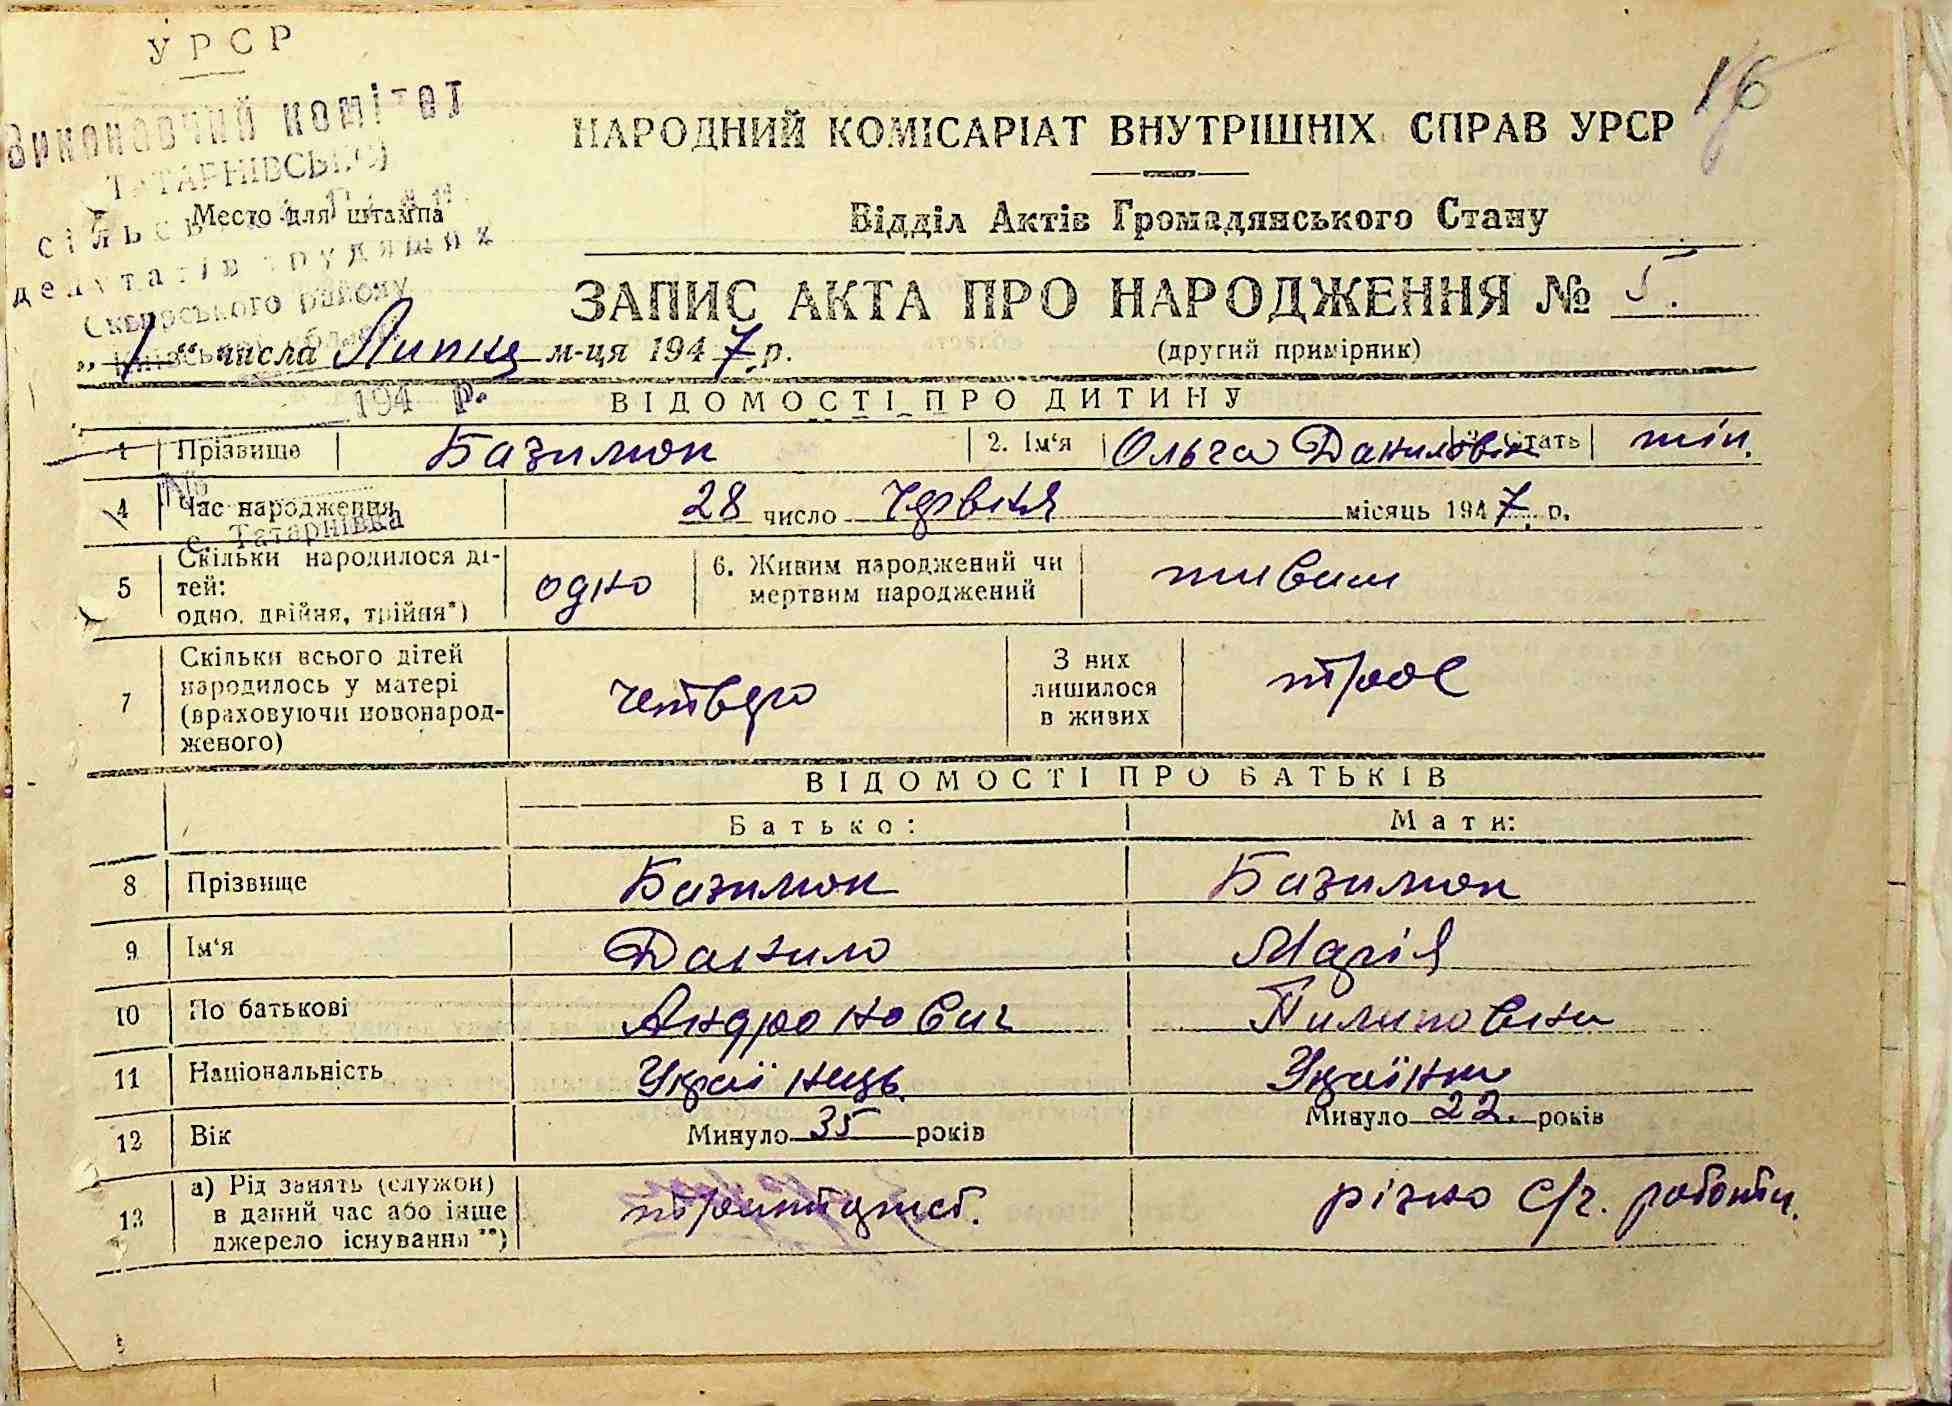 УРСР
16
Виконавчий комітет
НАРОДНИЙ КОМІСАРІАТ ВНУТРІШНІХ СПРАВ УРСР
Татарнівської
сільської Ради
Место для штампа
Відділ Актів Громадянського Стану
депутатів трудящих
Сквирського району
Київської області
ЗАПИС АКТА ПРО НАРОДЖЕННЯ № 5.
„ 1 “ числа Липня м-ця 1947 р.
(другий примірник)
194 р.
ВІДОМОСТІ ПРО ДИТИНУ
1 Прізвище Базилюк 2. Ім‘я Ольга Данилівна 3. Стать жін.
№
4 Час народження 28 число Червня місяць 1947 р.
с. Татарнівка
5 Скільки народилося ді-
тей:
одно, двійня, трійня*) одно 6. Живим народжений чи
мертвим народжений живим
7 Скільки всього дітей
народилось у матері
(враховуючи новонарод-
женого) четверо З них
лишилося
в живих троє
ВІДОМОСТІ ПРО БАТЬКІВ
Батько: Мати:
8 Прізвище Базилюк Базилюк
9 Ім‘я Данило Марія
10 По батькові Андронович Пилиповна
11 Національність Українець Українка
12 Вік Минуло 35 років Минуло 22. років
13 а) Рід занять (служби)
в даний час або інше
джерело існування **) різно с/г. роботи.